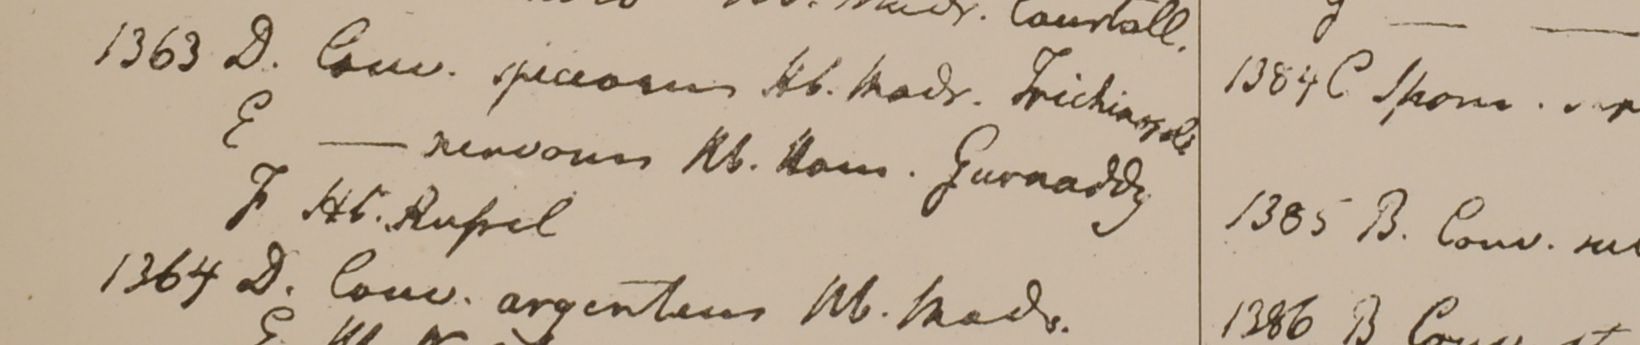 Hb. Madr. Courtall.
1363 D. Conv. speciosus Hb. Madr. Trichinopoly
E — nervosus Hb. Ham. Gurnaddy
F Hb. Russel
1364 D. Conv. argenteus Hb. Madr.
E Hb.
1384 C Ipom.
1385 B. Conv.
1386 B Conv.